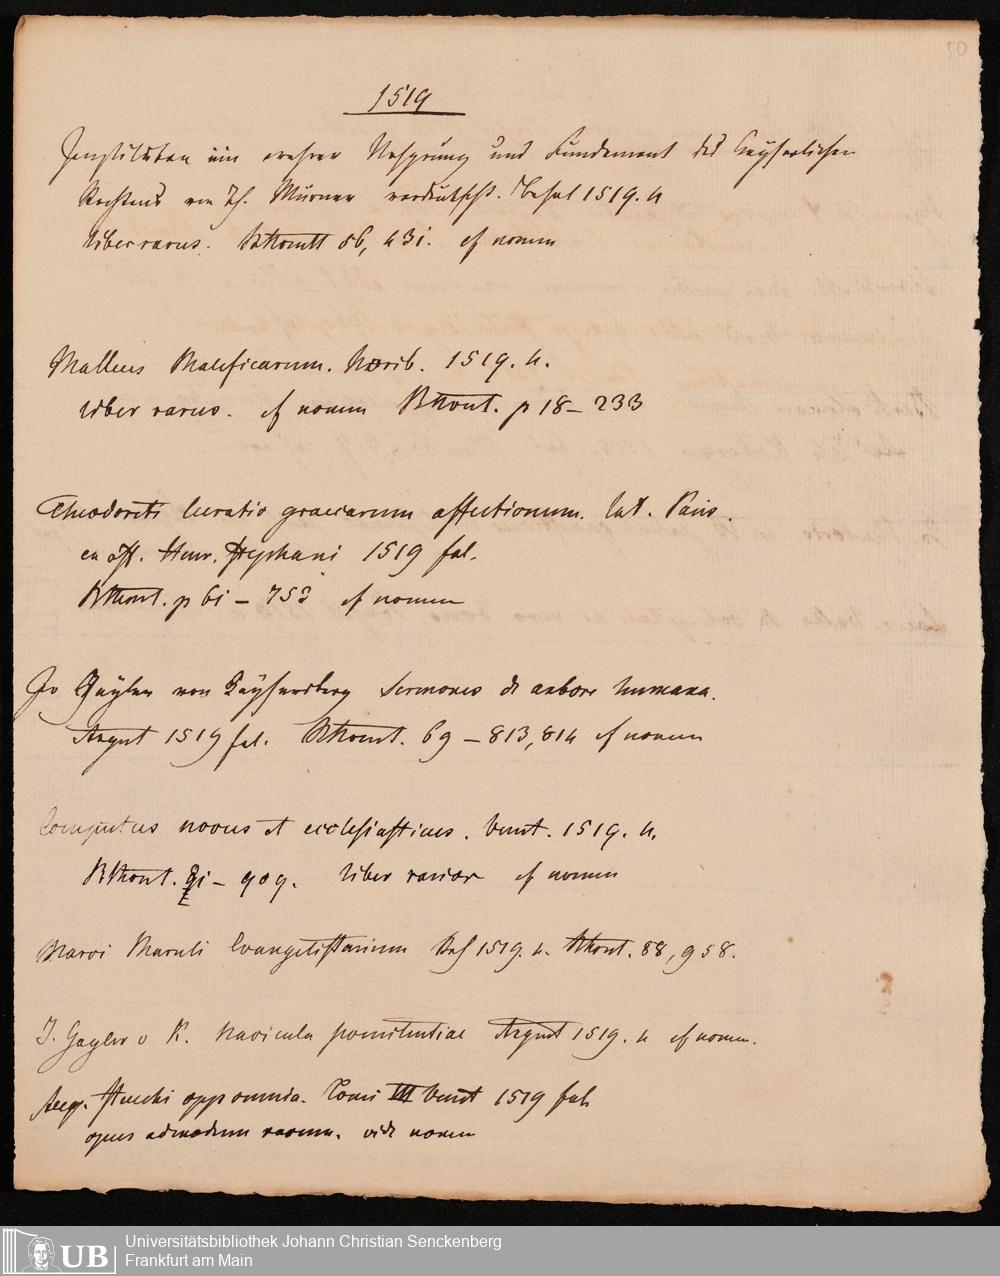 50
1519
Institutten ein wahrer Ursprung und Fundament des Keyserlichen
Rechtens von Th. Murner verdeutscht. Basel 1519. 4
liber rarus. 56, 431. cf nomen
Malleus Maleficarum. Norib. 1519. 4.
liber rarus. cf nomen p 18 – 233
Theodoreti Curatio graecarum affectionum. lat. Paris.
ex off. Henr. Stephani 1519 fol.
p 61 – 753 cf nomen
Jo Gayler von Kaysersberg Sermones de arbore humana.
Argent 1519 fol. 69 – 813, 814 cf nomen
Computus novus et ecclesiasticus. Venet. 1519. 4.
– 909. liber rarior cf nomen
Marci Maruli Evangelistarium Bas 1519. 4. 88, 958.
J. Gayler v K. Navicula poenitentiae Argent 1519. 4 cf nomen.
opp omnia. Tomi III Venet 1519 fol.
opus admodum rarum. vide nomen
UB
Universitätsbibliothek Johann Christian Senckenberg
Frankfurt am Main